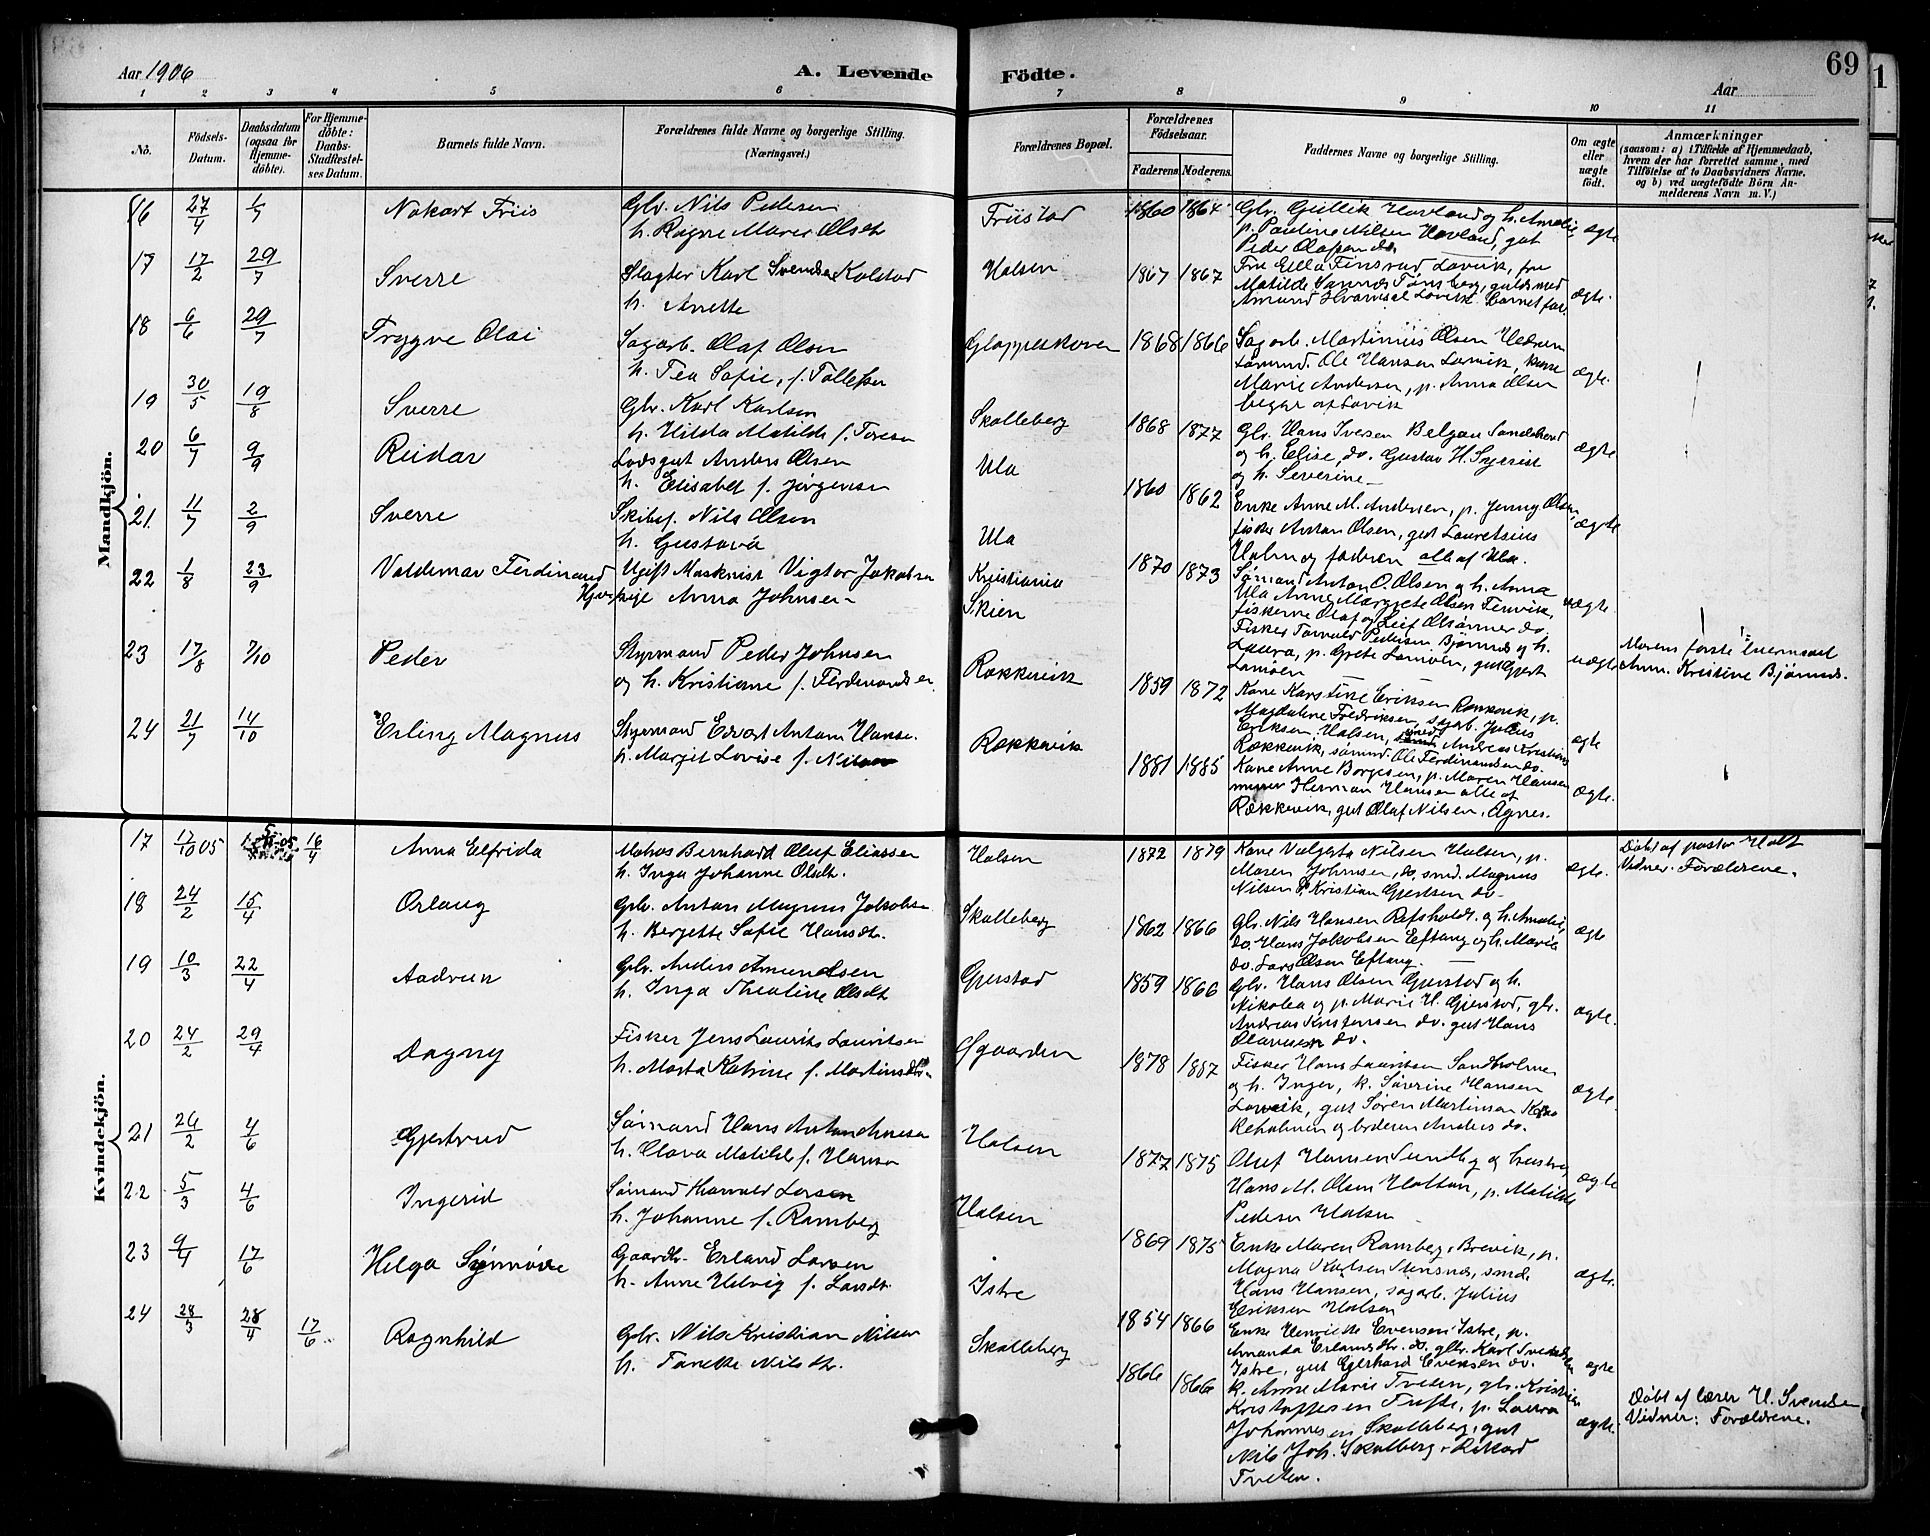 69
Aar 1906
A. Levende
Födte.
Aar
1 2 3 4 5 6
7 8 9 10 11
No.
Födsels-
Datum.
Daabsdatum
(ogsaa for
Hjemme-
döbte).
For Hjemme-
döbte:
Daabs-
Stadfæstel-
ses Datum.
Barnets fulde Navn.
Forældrenes fulde Navne og borgerlige Stilling.
(Næringsvei.)
Forældrenes Bopæl.
Forældrenes
Födselsaar.
Faderens. Moderens.
Faddernes Navne og borgerlige Stilling.
Om ægte
eller
uægte
födt.
Anmærkninger
(saasom: a) i Tilfælde af Hjemmedaab,
hvem der har forrettet samme, med
Tilföielse af to Daabsvidners Navne.
og b) ved uægtefödte Börn An-
melderens Navn m. V.)
Mandkjön.
16 27/4 1/7 Friis Glr. Nils Pedersen
h. Ragne Marie Olsdtr
Friistad 1860 1864 Glr. Gullik Havland og h. Amalie
p. Pauline Nilsen Havland, gut
Peder Olafsen do.
ægte
17 17/2 29/7 Sverre Slagter Karl Svendsen Kolstad
h. Anette
Halsen 1867 1867 Fru Ella Finsrud Larvik, fru
Matilde Tønsberg, guldsmed
Amund Larvik. Barnets far.
ægte.
18 6/6 29/7 Trygve Olai Sagarb. Olaf Olsen
h. Tea Sofie, f. Tollefsen
1868 1866 Sagarb. Martinius Olsen Hedrum
sømnd. Ole Hansen Larvik, kone
Marie Andersen, p. Anna Olsen
begge af Larvik
ægte.
19 30/5 19/8 Sverre Glr. Karl Karlsen
h. Hilda Matilde f. Toresen
Skalleberg 1868 1877 Glr. Hans Iversen Sandeherred
og h. Elise, do. Gustav H.
og h. Severine
ægte
20 6/7 9/9 Reidar Lodsgut Anders Olsen
h. Elisabet f. Jørgensen
Ula 1860 1862 Enke Anne M. Andersen, p. Jenny Olsen,
fisker Anton Olsen, gut Lauretsius
Holm og faderen alle af Ula.
ægte
21. 11/7 2/9 Sverre Skibsf. Nils Olsen
h. Gustava
Ula 1870 1873 Sømand Anton O. Olsen og h. Anna
Ula Anne Margrete Olsen
fiskerne Olaf og Leif do.
22 1/8 23/9 Valdemar Ferdinand Ugift Maskinist Vigtor Jakobsen
pige Anna Johnsen
Kristiania
Skien
Fisker Torvald Pedersen Bjønnes og h.
Laura, p. Grete Lamøen, gut
Lamøen
uægte
Morens første
Anm. Kristine Bjønnes.
23 17/8 7/10 Peder Styrmand Peder Johnsen
og h. Kristiane f. Ferdinandsen
Rækkevik 1859 1872 Kone Karstine Eriksen Rækkevik, p.
Magdaline Fredriksen, sagarb. Julius
Eriksen Halsen, Andreas Kristians
Rækkevik, sømnd. Ole Ferdinandsen do.
ægte
24 21/7 14/10 Erling Magnus Styrmand Edvart Antam Hanse.
h. Margit Lovise f. Nilsen
Rækkevik 1881 1885 Kone Anne Borgesen, p. Maren Hansen
Herman Hansen alle af
Rækkevik, gut Olaf Nilsen, Agnes.
ægte.
Kvindekjön.
17 17/10 05 16/4 Anna Elfrida Matros Bernhard Oluf Eliassen
h. Inga Johanne Olsdtr.
Halsen 1872 1879 Kone Valgerta Nilsen Halsen, p.
Maren Johnsen, do. smd. Magnus
Nilsen Kristian Gjertsen do
ægte.
Døbt af pastor Holt
Vidner. Forældrene.
18 24/2 15/4 Oslaug Grbr. Antan Magnus Jakobsen
h. Bergette Sofie Hansdtr.
Skalleberg 1862 1866 Glr. Nils Hansen Refsholdt. og h. Amalie
do. Hans Jakobsen Eftang og h. Marie
do. Lars Olsen Eftang.
ægte
19 10/3 22/4 Aadrun Grbr. Anders Amundsen
h. Inga Theoline Olsdt
Gjerstad 1859 1866 Glr. Hans Olsen Gjerstad og h.
Nikolea og p. Marie H. Gjerstad, glr.
Andreas Kristensen do. gut Hans
Olavesen do.
ægte.
20 24/2 29/4 Dagny Fisker Jens Laurits Lauritsen
h. Marta Katrine f. Martinsdtr.
Øgaarden 1878 1887 Fisker Hans Lauritsen Sandholmen
og h. Inger, k. Severine Hansen
Larvik, gut Søren Martinsen
Reholmen og broderen Anders do.
ægte.
21 26/2 4/6 Gjertrud Sømand Hans Antan
h. Olava Matilde f. Hansen
Halsen 1877 1875 Oluf Hansen Sundby og hustru,
Hans M. Olsen Holtan, p. Matilde
Pedersen Halsen
ægte
22 5/3 4/6 Ingerid Sømand Harvald Larsen
h. Johanne f. Ramberg
Halsen 1869 1875 Enke Maren Ramberg, Brevik, p.
Magna Karlsen Stensnæs, smd.
Hans Hansen, sagarb. Julius
Eriksen Halsen
ægte.
23 9/4 17/6 Helga Synnøve Gaardbr. Erland Larsen
h. Anne Helvig f. Larsdtr.
Istre 1854 1866 Enke Henrikke Evensen Istre, p.
Amanda Erlandsdtr. do. glbr. Karl Svendsen
Istre, gut Gjerhard Evensen do.
ægte
24 28/3 28/4 17/6 Ragnhild Gbr. Nils Kristian Nilsen
h. Tancke Nilsdtr.
Skalleberg 1866 1866 k. Anne Marie Tveten, glr. Kristian
Kristoffersen p. Laura
Johannesen Skalleberg, gut
Nils Joh. Skalberg, Rikard
Tveten.
ægte.
Døbt af lærer H. Svendsen
Vidner: Forældrene.